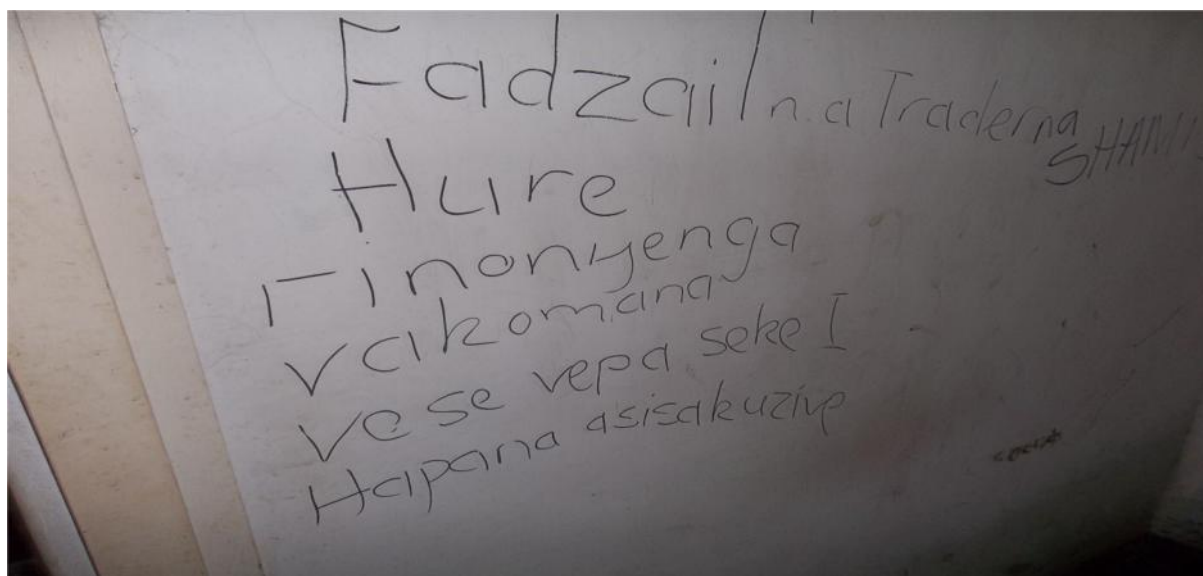 Fadzai n.a Traderna
SHAM
Hure
rinonyenga
vakomana
vese vepa seke I
Hapana asisakuzive